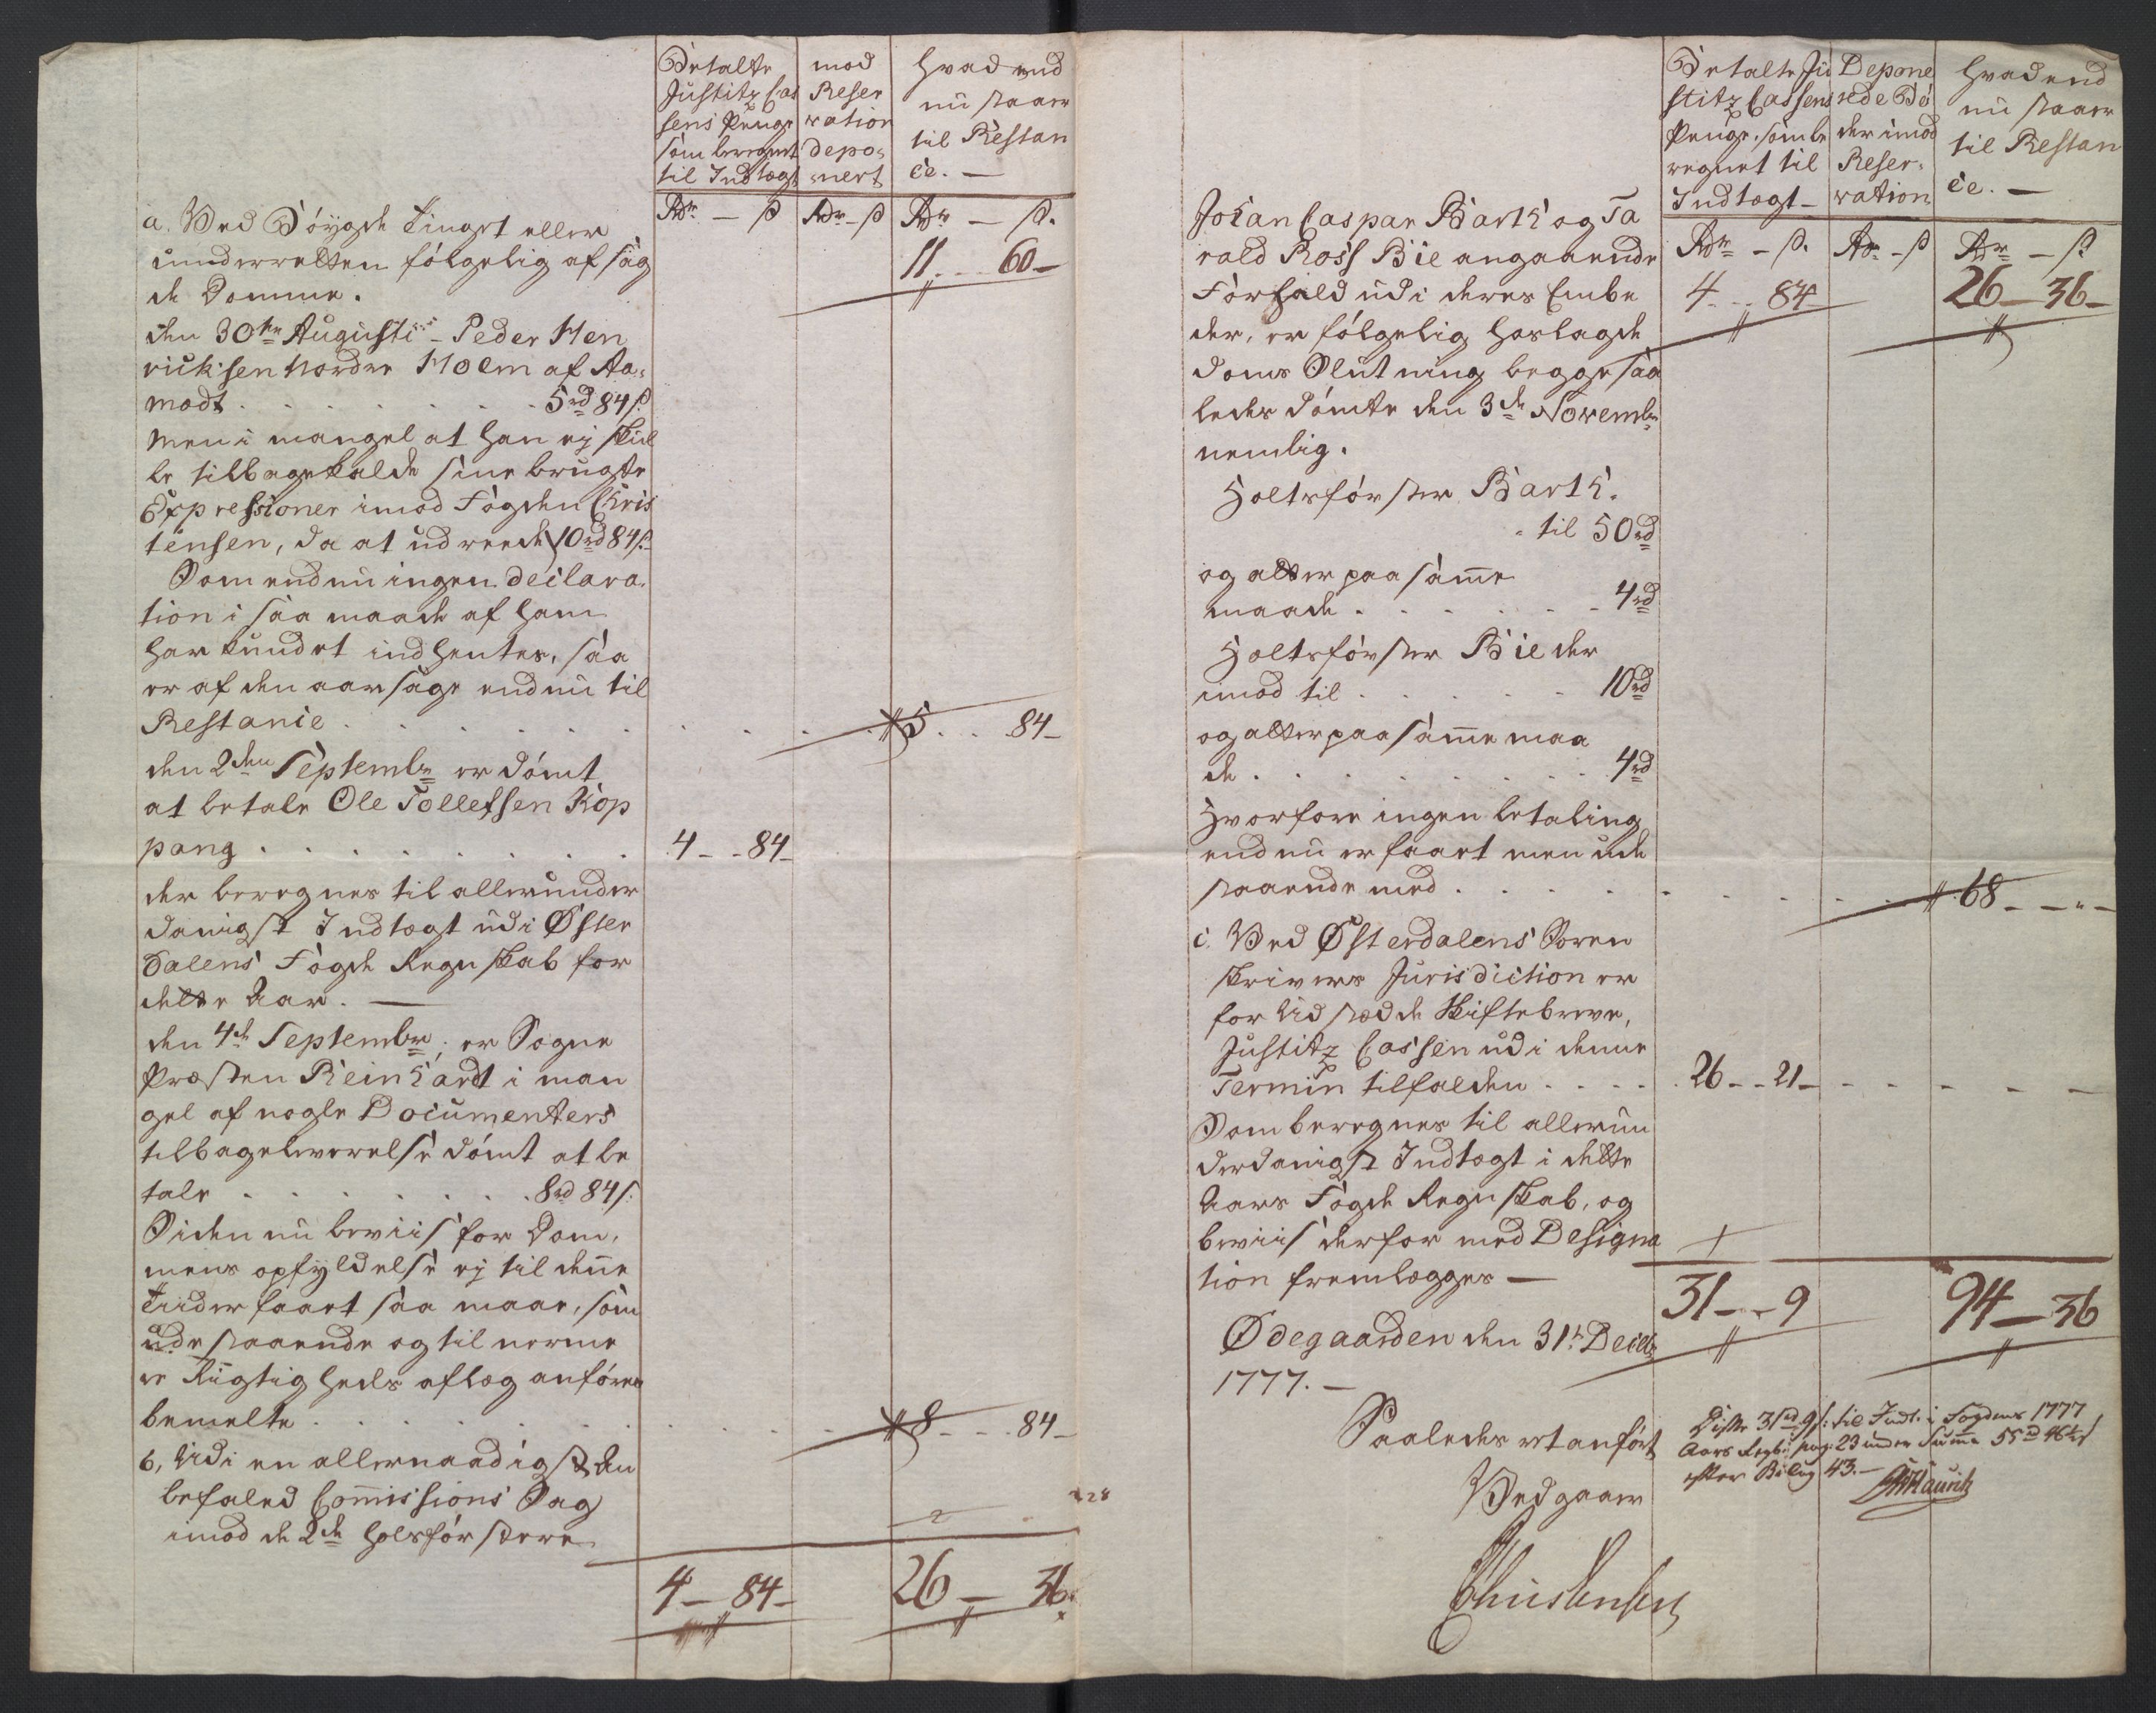 Betalte
Justitz Cas
sens Penge
som beregnet
til Indtægt
mod
Reser
vation
depo-
neret
Hvad end
nu staar
til Restan
ce. —
Rdr — ß
Rdr - ß
Rdr — ß.
a. Ved Bøygde Tinget eller
underretten følgelig afsag
de Domme.
11 . . 60 —
den 30te Augusti - Peder Hen
richsen Nordre Holm af Aa-
modt . . . . . . . 5rd 84ß
men i mangel at han ej skul
le tilbagekalde sine brugte
Expressioner imod Fogden Chris
tensen, da at udreede 10rd 84ß.
Som endnu ingen declara-
tion i saa maade af ham
har kundet indhentes, saa
er af den aarsage endnu til
Restance . . . . . . . . . 5 . . . 84 —
den 2den Septembr er dømt
at betale Ole Tollefsen Kop
pang . . . . . . . . 4 - - 84 —
der beregnes til allerunder
danigst Indtægt udi Øster
dalens Fogde Regnskab for
dette Aar. —
den 4de Septembr. er Sogne
Præsten Reinhardt i man
gel af nogle Documenters
tilbageleverelse dømt at be
tale . . . . . . . 8rd 84ß:
Siden nu beviis for Dom-
mens opfyldelse ej til denne
Tiid er faaet saa maae, som
udestaaende og til nerme
re Rigtigheds aflæg anføres
bemelte . . . . . . . . . 8 - - . . 84 —
b, Udi en allernaadigst An
befaled Commissions Sag
imod de 2de Holtsførstere
4 — 84 —
26 — 36.
Betalte Ju
stitz Cassens
Penge, som be
regnet til
Indtægt —
Depone
rede Bø
der imod
Reser-
vation
Hvad end
nu staar
til Restan
ce. —
Rdr — ß.
Rdr - ß
Rdr — ß
Johan Caspar Barth og Ta
rald Ross Bie angaaende
4 . . . 84
26 — 36 —
Forfald udi deres Embe
der, er følgelig hoslagde
doms Slutning begge saa
ledes dømte den 3de Novembr
nemlig.
Holtsførster Barth.
til 50rd
og atter paa samme
maade . . . . . . 4rd
Holtsførster Bie der
imod til . . . . . 10rd
og atter paa samme maa
de . . . . . . . . 4rd
Hvorfore ingen betaling
endnu er faaet men ude
staaende med . . . . . . . . . 68 - — " —
c. Ved Østerdalens Soren
skrivers Jurisdiction er
for Udstædde Skiftebreve,
Justitz Cassen udi denne
Termin tilfalden . . . . . 26 - - 21 — - - — — —
Som beregnes til allerun
derdanigst Indtægt i dette
Aars Fogde Regnskab, og
beviis derfor med Designa
tion fremlægges —
31 - - 9
94 — 36
Ødegaarden den 31te Decbr
1777. —
Saaledes rt anført
Vedgaaer
Christensen
Diste 31rd 9ß: til Indt: i Fogdens 1777
Aars Regb: pag: 23 under Summa 55rd 46½ß
efter Bilag 43. —